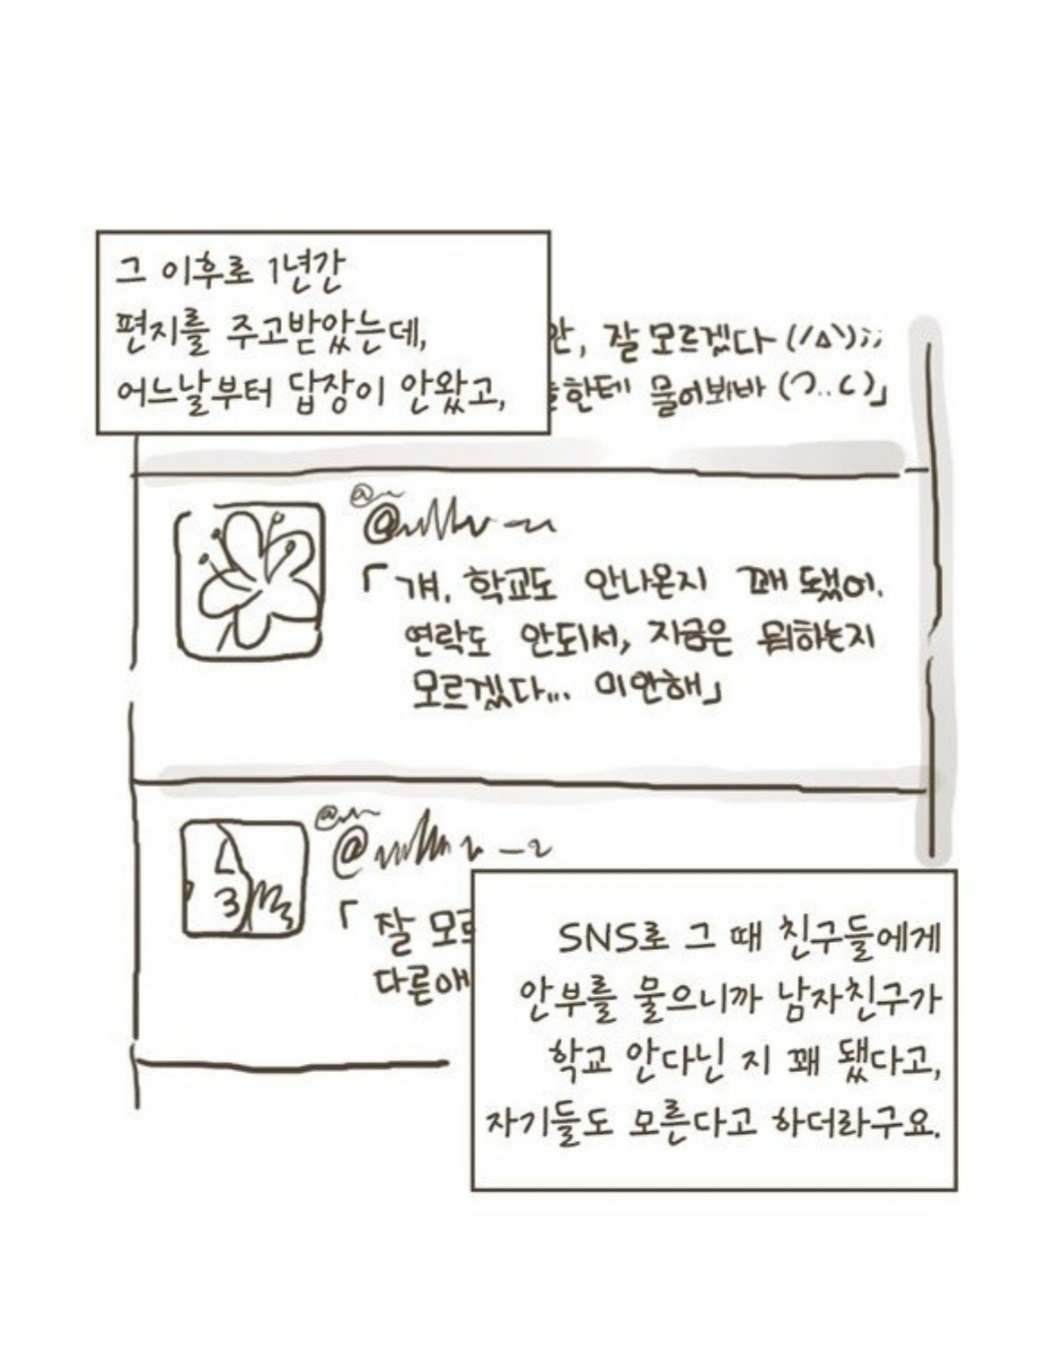 그 이후로 1년간
편지를 주고받았는데,
어느날부터 답장이 안왔고,
잘 모르겠다 (/Δ\);;
물어봐바 (?..C)」
「걔, 학교도 안나온지 꽤 됐어.
연락도 안되서, 지금은 뭐하는지
모르겠다... 미안해」
「잘 모르
다른애
SNS로 그 때 친구들에게
안부를 물으니까 남자친구가
학교 안다닌 지 꽤 됐다고,
자기들도 모른다고 하더라구요.